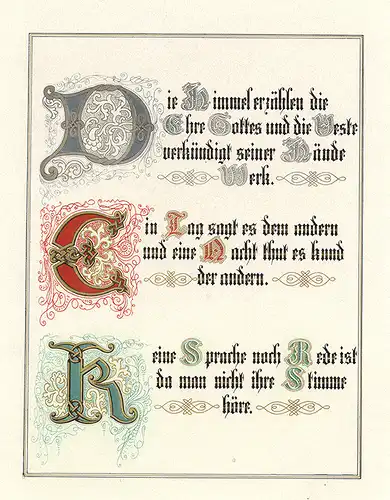 Die Himmel erzählen die
Ehre Gottes und die Veste
verkündigt seiner Hände
Werk.
Ein Tag sagt es dem andern
und eine Nacht thut es kund
der andern.
Keine Sprache noch Rede ist
da man nicht ihre Stimme
höre.